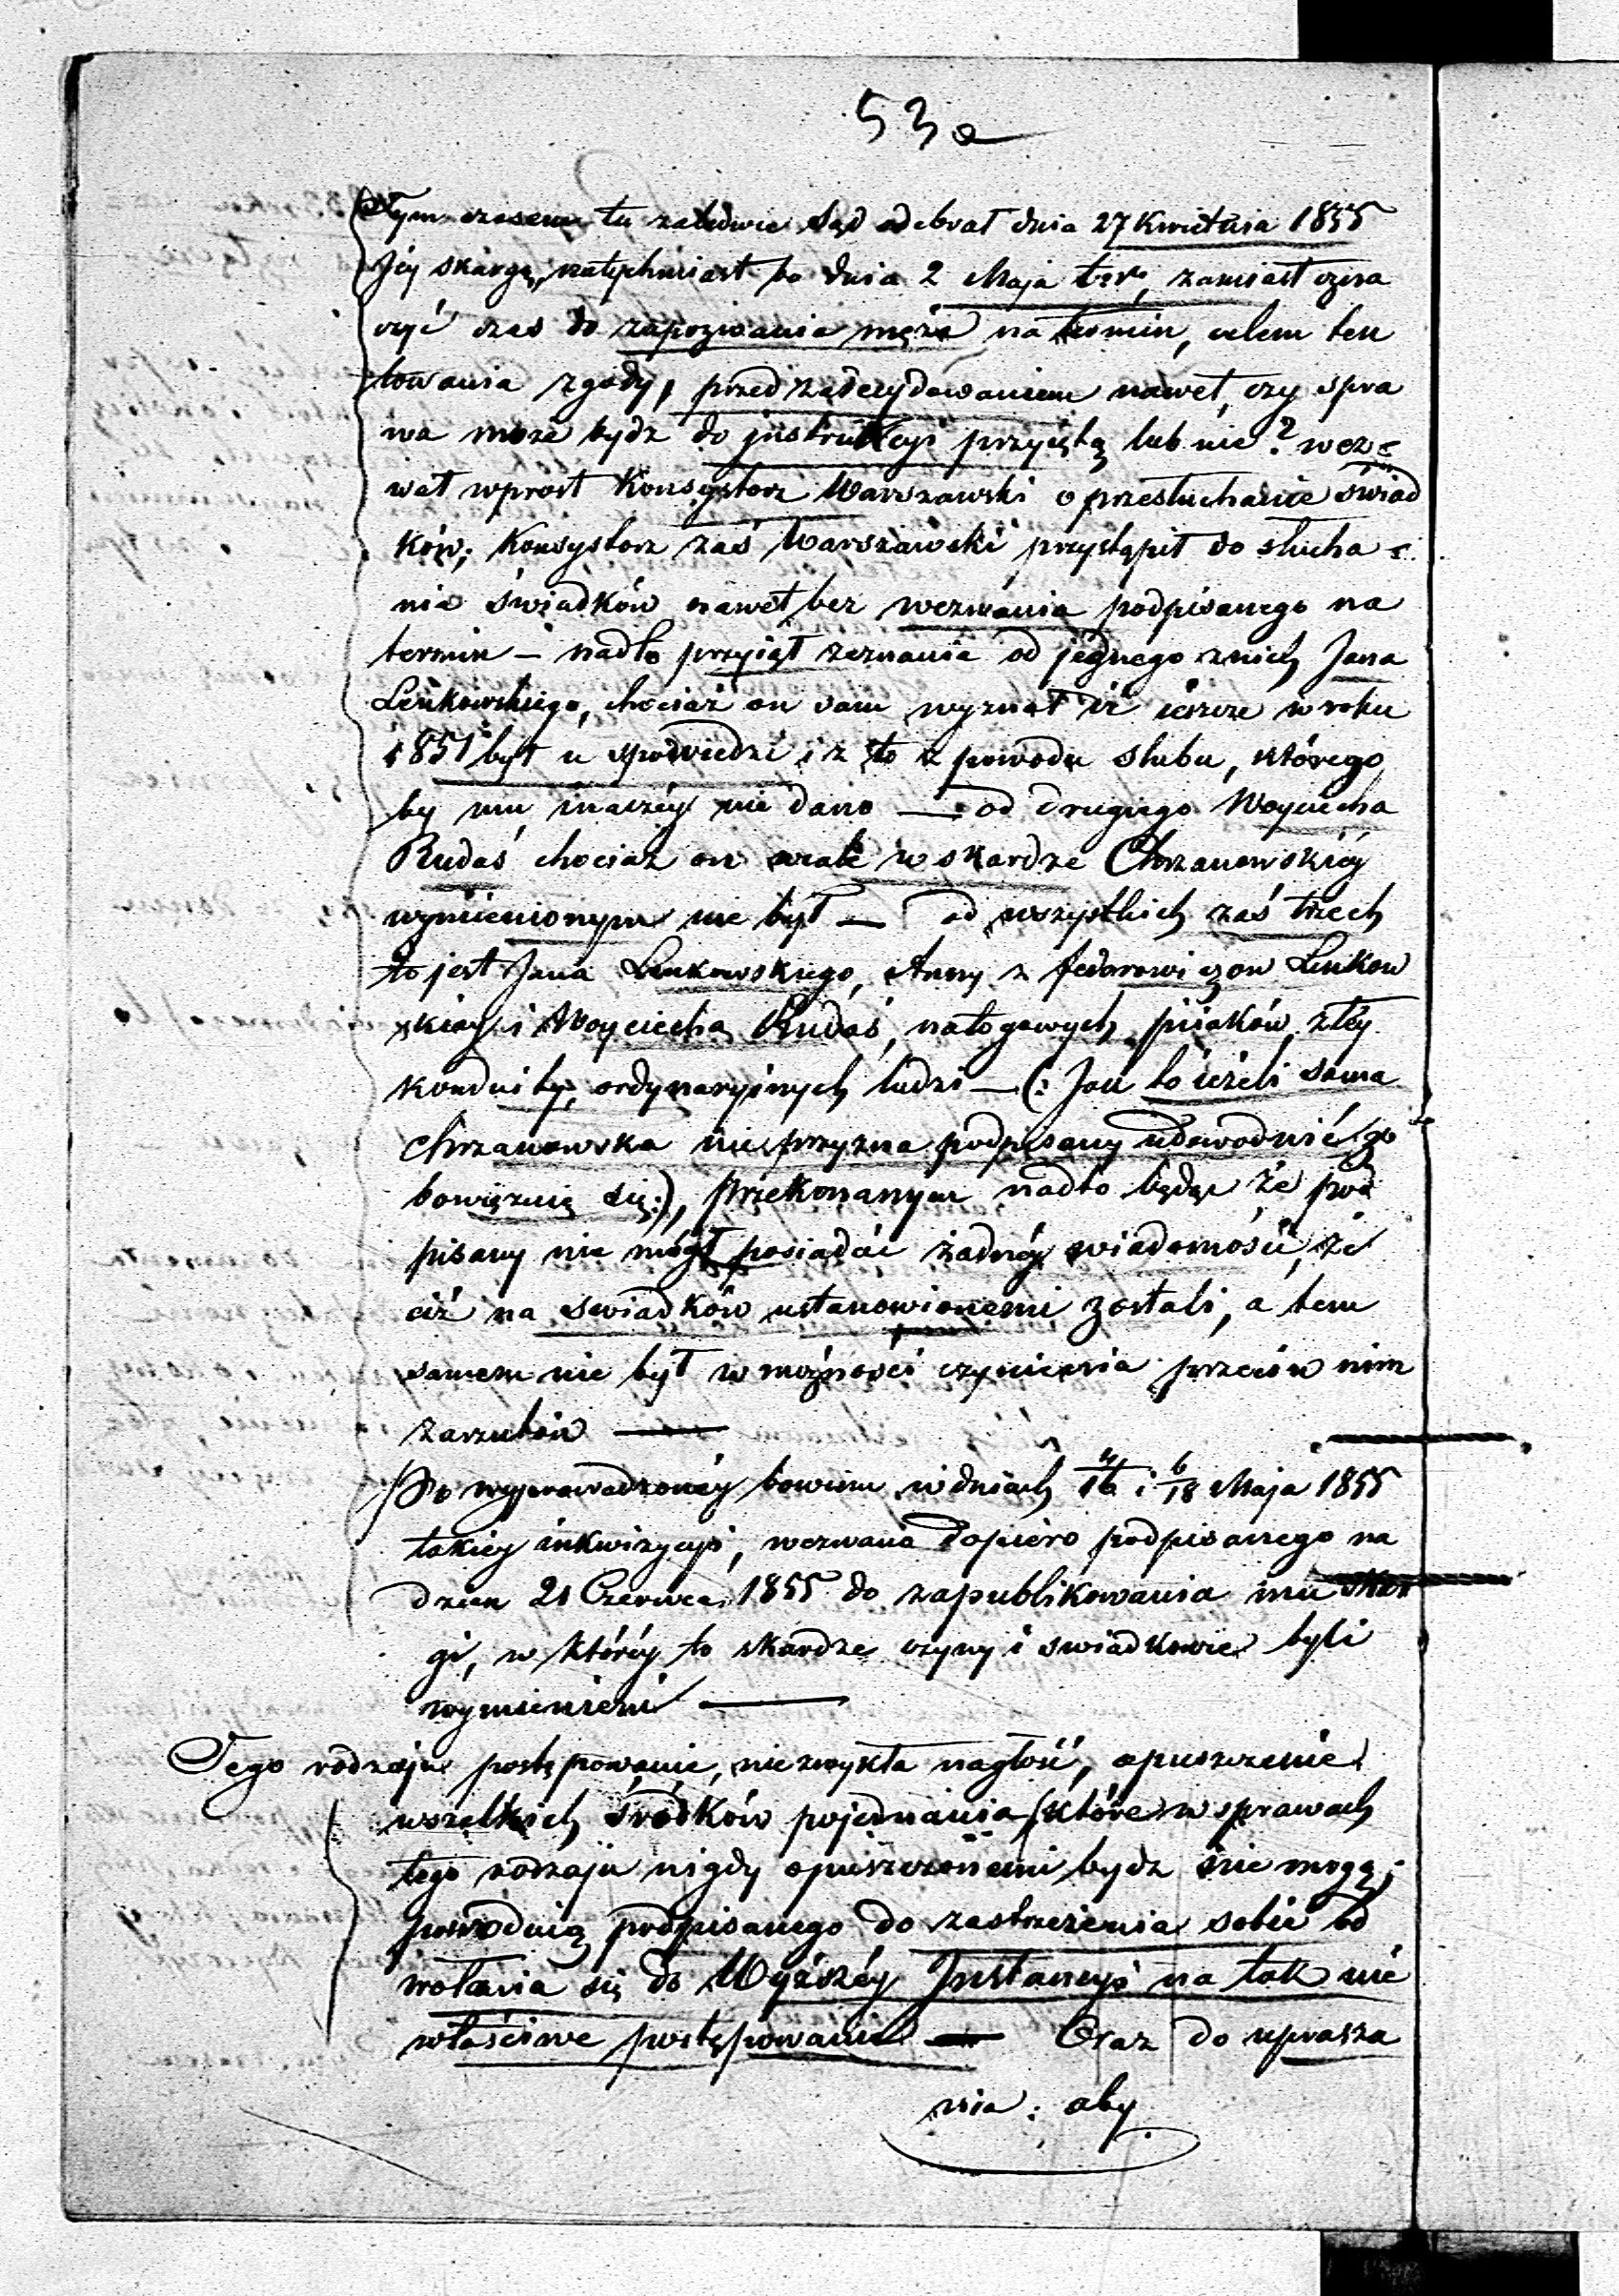 53a
Tym czasem tu zaledwie Sąd odebrał dnia 27 Kwietnia 1855
Jéy skargę, natychmiast bo dnia 2 Maja t.r., zamiast ozna
czyć czas do zapozwania męża na termin, celem ten
towania zgody, przed zadecydowaniem nawet, czy spra
wa może bydz do instrukcyi przyiętą lub nie? wez=
wał wprost Konsystorz Warszawski o przesłuchanie świad
ków; Konsystorz zaś Warszawski przystąpił do słucha=
nia świadków nawet bez wezwania podpisanego na
termin — nadto przyiął zeznania od jednego z nich Jana
Leńkowskiego, chociaż on sam wyznał iż ieszcze w roku
1851 był u spowiedzi i z to z powodu slubu, którego
by mu inaczéy nie dano — od drugiego Woyciecha
Rudaś chociaż on wcale w skardze Chrzanowskiéy
wymienionym nie był — od wszystkich zaś trzech
to jest Jana Lenkowskiego, Anny z Fedorowiczow Lenkow
skiey i Woyciecha Rudaś, nałogowych piiaków, złéy
konduity, ordynaryinych ludzi — (: Jak to ieżeli sama
Chrzanowska nie przyzna podpisany udowodnić go
bowięzuię się:), przekonanym nadto będąc że pod
pisany nie mógł posiadać żadnéy wiadomości, że
ciż na swiadków ustanowionemi zostali, a tem
samem nie był w możności czynienia przeciw nim
zarzutów —
Po wyprowadzonéy bowiem w dniach 4/16 i 6/18 Maja 1855
takiey inkwizycyi, wezwano dopiero podpisanego na
dzien 21 Czerwca 1855 do zapublikowania mu skar
gi, w któréy to skardze czyny i swiadkowie byli
wymienieni —
Tego rodzaju postępowanie, niezwykła nagłość, opuszczenie
wszelkich środków pojednania (które w sprawach
tego rodzaju nigdy opuszczonemi bydz nie mogą;
powodują podpisanego do zastrzeżenia sobie od
wołania się do Wyższéy Instancyi na tak nie
właściwe postępowanie — Oraz do uprasza
nia: aby